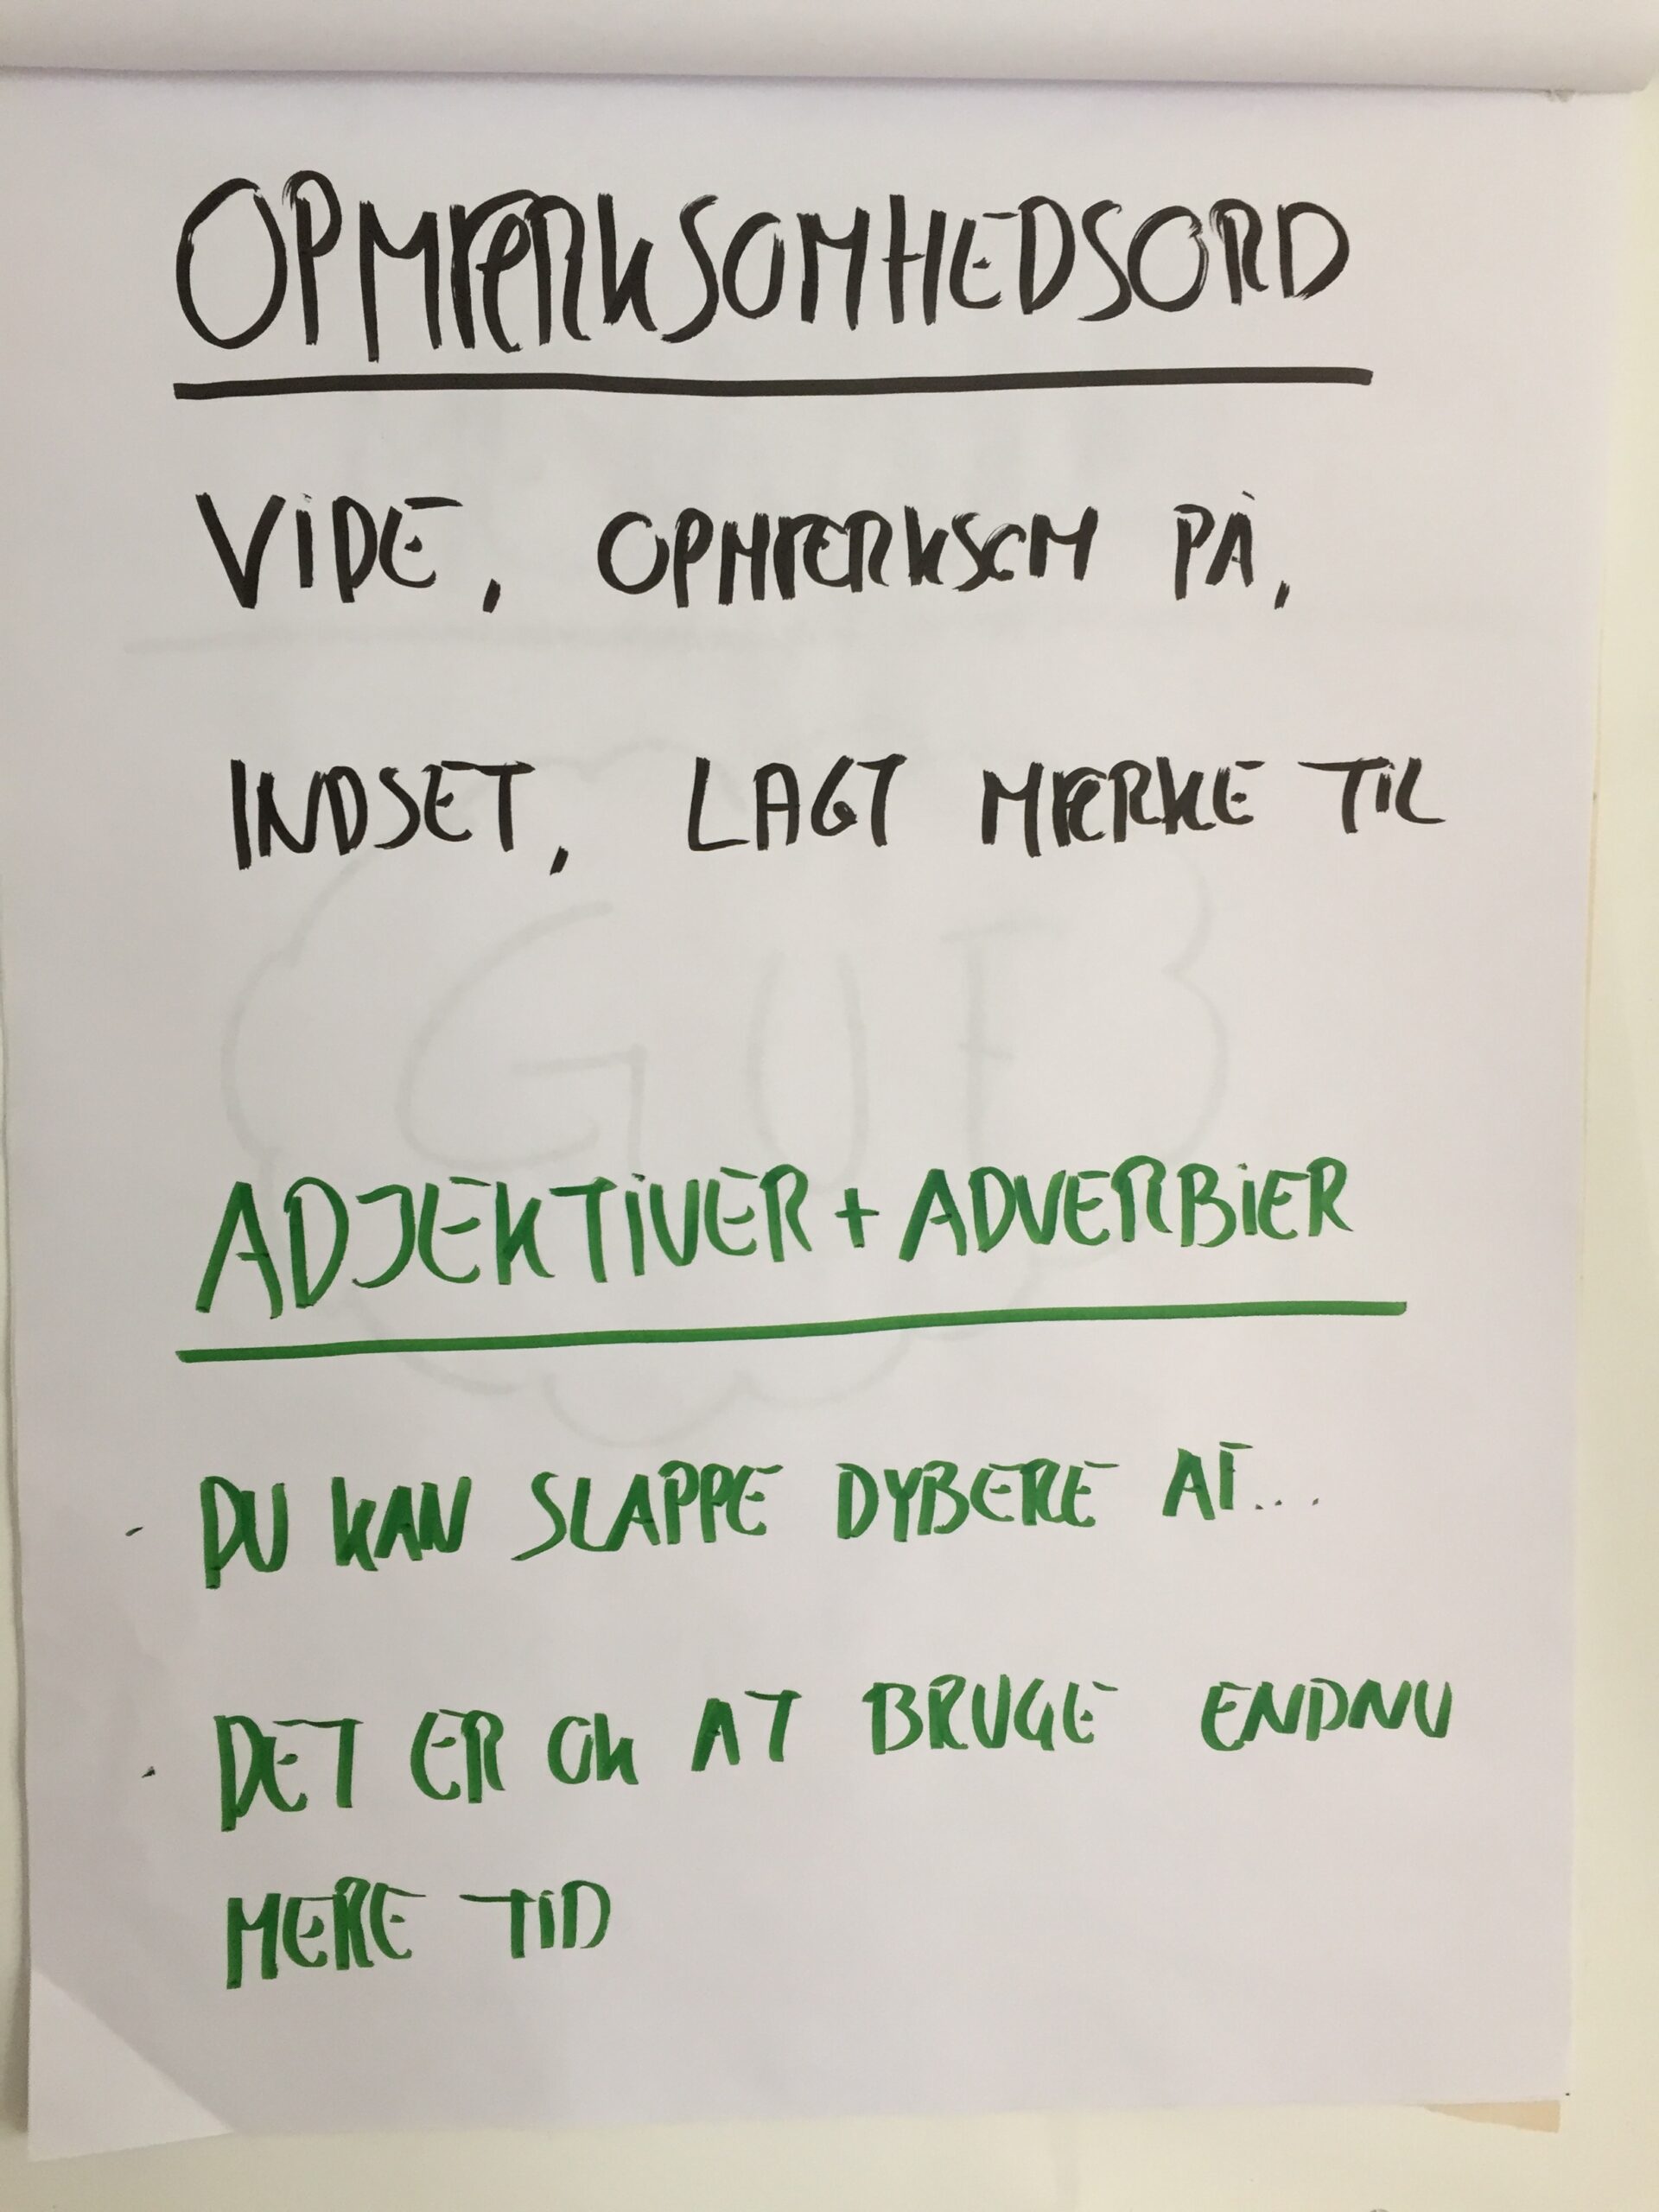 OPMÆRKSOMHEDSORD
VIDE, OPMÆRKSOM PÅ,
INDSET, LAGT MÆRKE TIL
GUF
ADJEKTIVER + ADVERBIER
- DU KAN SLAPPE DYBERE AF...
- DET ER OK AT BRUGE ENDNU
MERE TID